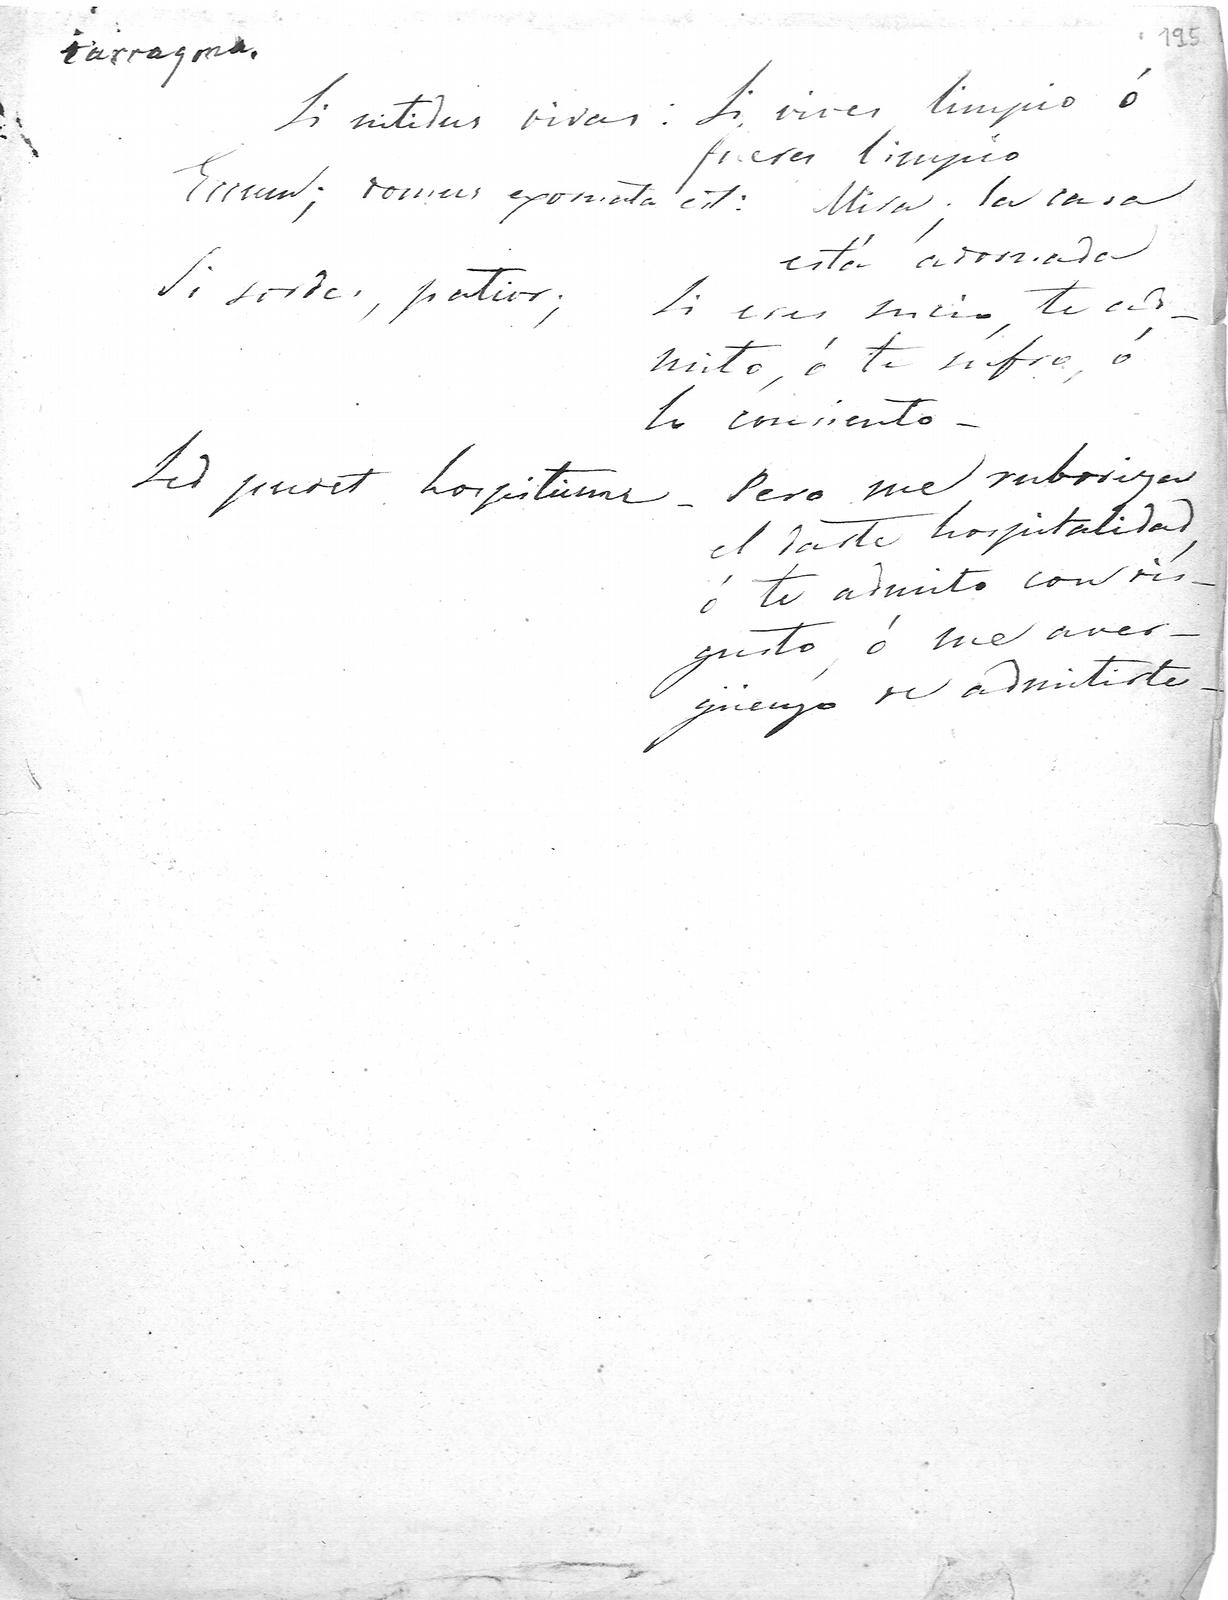 Tarragona.
195
Si nitidus vivas: Si vives limpio ó
fueres limpio
Eccum; domus exornata est: Mira; la casa
está adornada
Si sordes, patior; Si eres sucio, te ad-
mito, ó te sufro, ó
lo consiento -
Sed pudet hospitium - Pero me ruboriza
el darte hospitalidad,
ó te admito con dis-
gusto, ó me aver-
güenzo de admitirte -